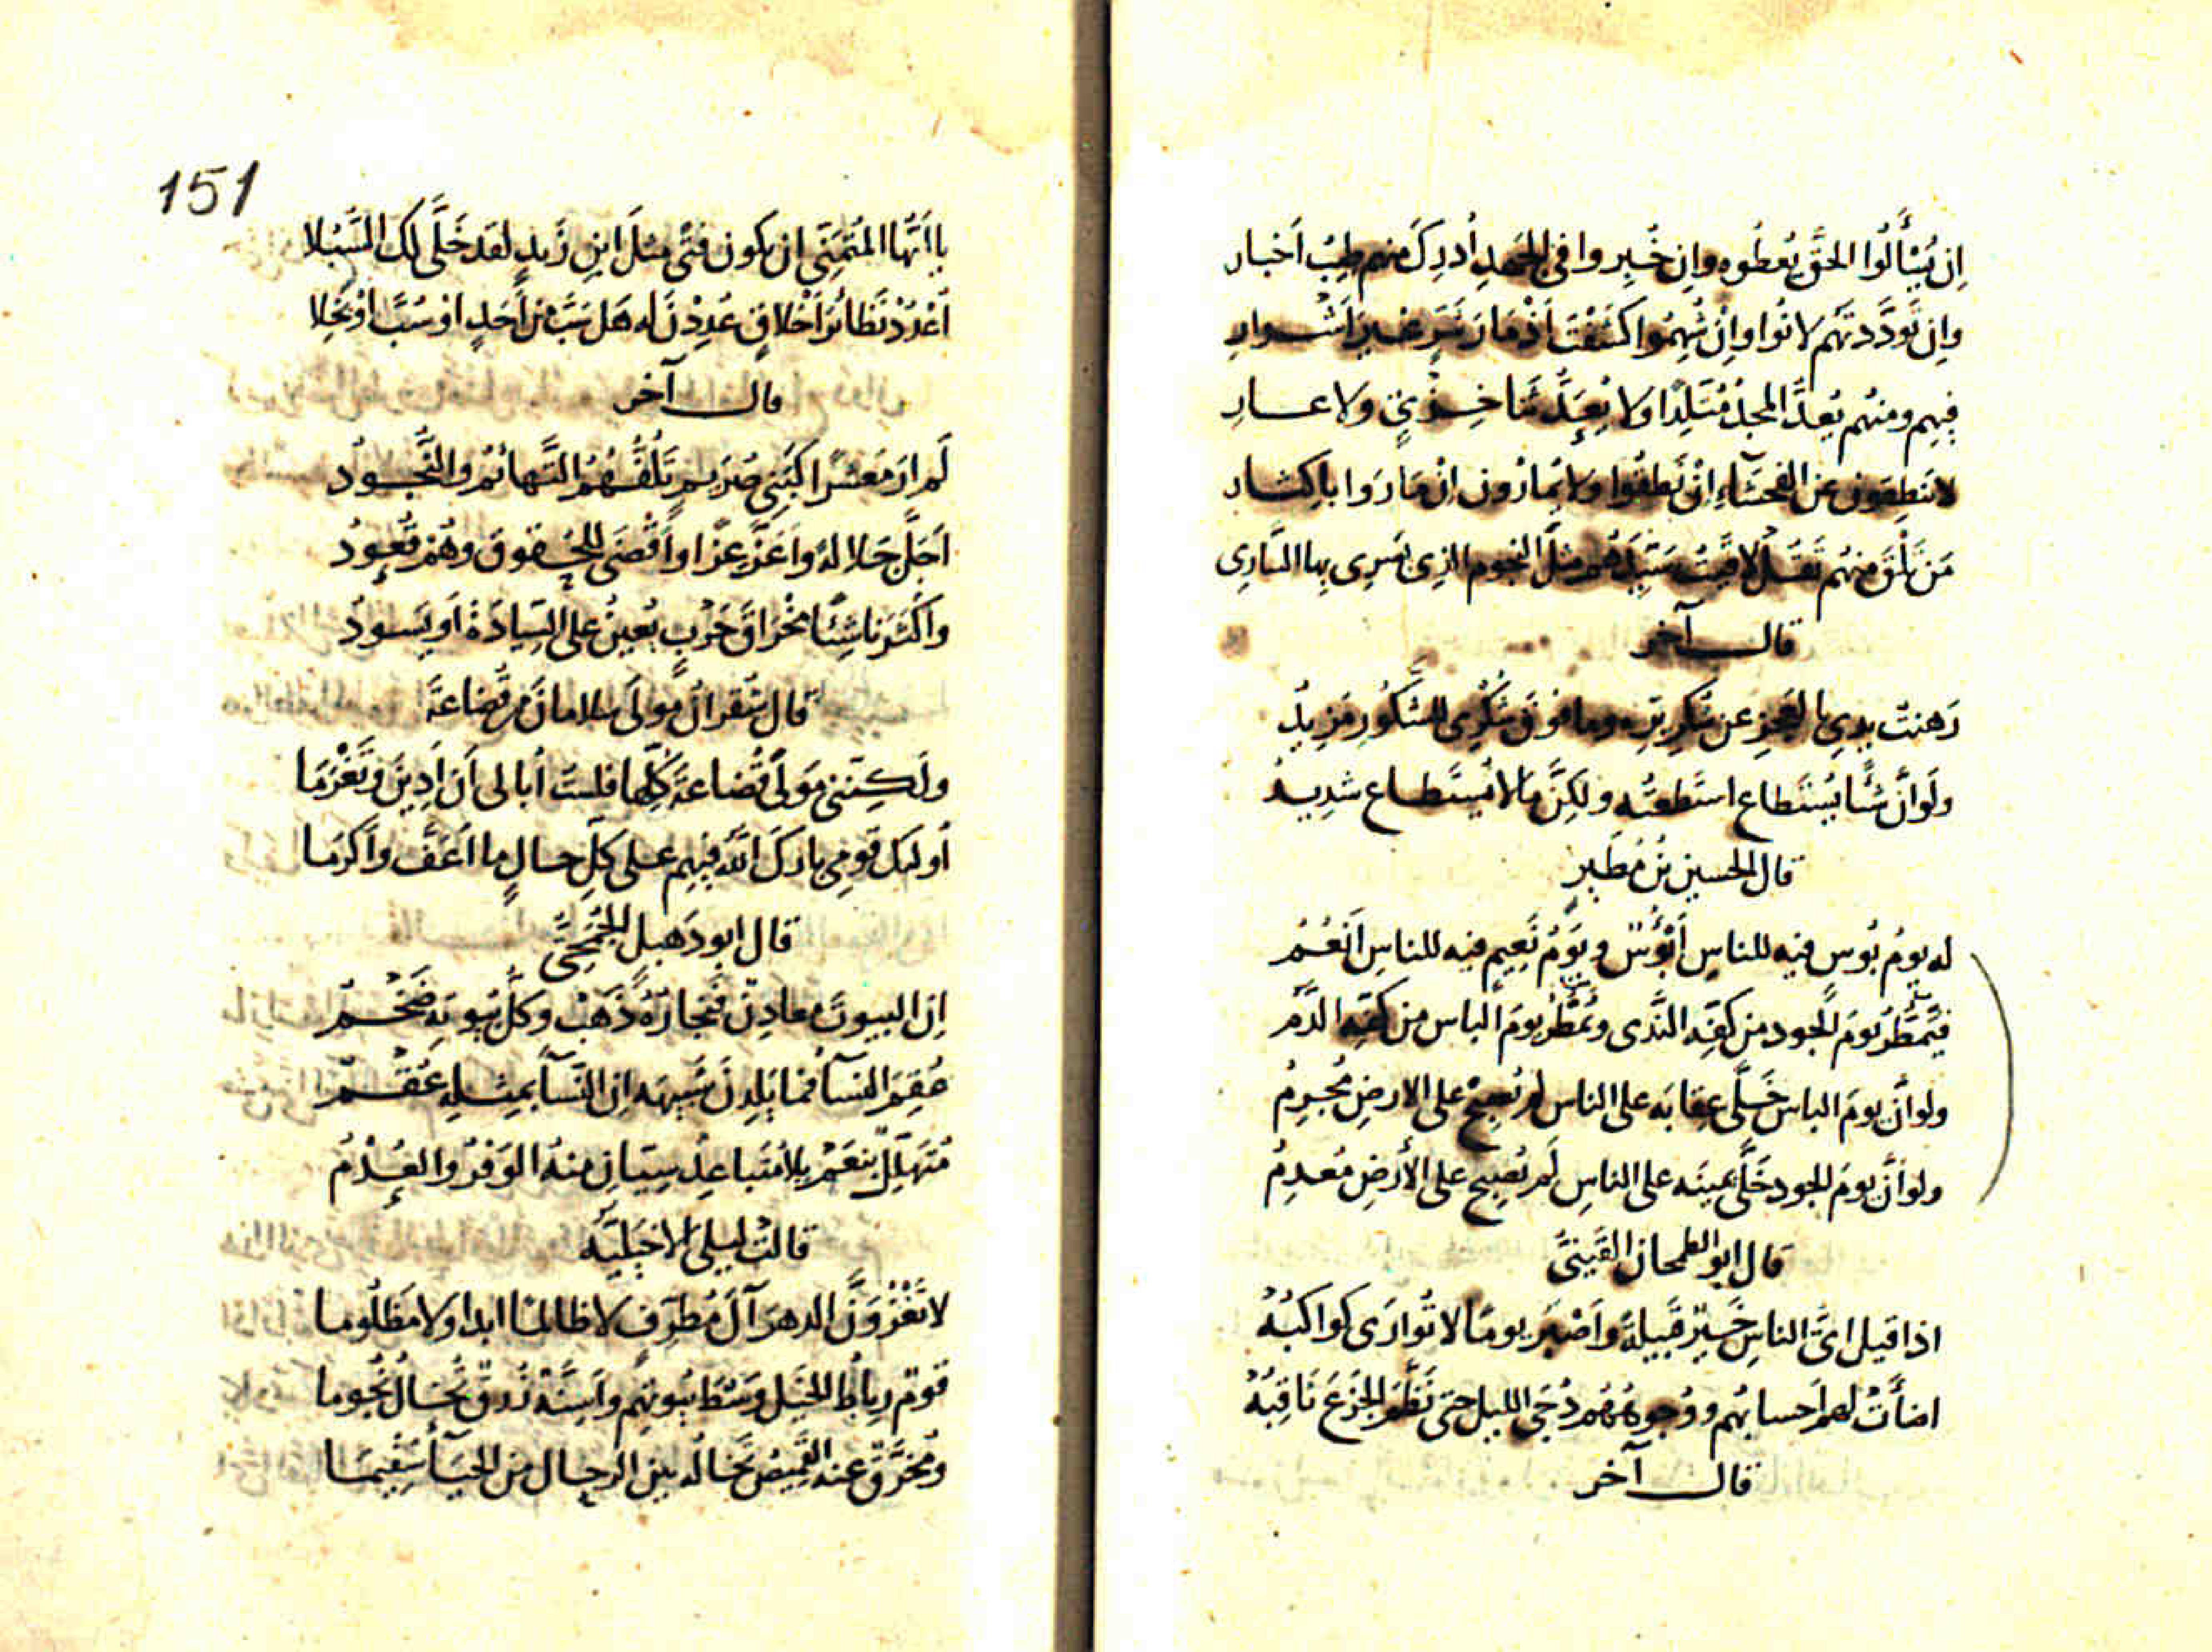 اِن يُسْأَلُوا الحقَّ يُعطُوه واِن خُبِروا فى الجَهدِ أُدرِكَ منهم طِيبُ اَخبار
واِن تَودَّدتَهُم لانُوا واِنْ شُهِمُوا كَشَفْتَ اَذْمَارَ شَرٍّ غيرَ اَشْرارِ
فيهِم ومنهُم يُعدُّ المجدُ مُتَّلِدًا ولا يُعَدُّ ثَنا خِزْيٍ ولا عارِ
لا ينطِقون عن الفحشَآءِ اِنْ نَطقُوا ولا يُمارُون اِنْ مَارَوا باِكثار
مَن تَلْقَ منهُم تَقُلْ لاقيتُ سَيِّدَهُم مثلَ النجوم الذى يَسرِى بِها السَّارِى
قال آخر
رَهنتُ يدِى بالعَجزِ عن شُكرِ بِرِّه وما فوقَ شُكْرِى للشَّكُورِ مَزيدُ
ولَوانَّ شَئًا يُستَطاع استَطعتُه ولكِنَّ ما لا يُستَطاع شدِيدُ
قال الحسين بنُ مُطَيرٍ
له يومُ بُوسٍ فيه للناسِ اَبْؤُسٌ ويَومُ نَعِيمٍ فيه للناسِ اَنعُمُ
فيَمطُرُ يومَ الجود من كفِّه النَّدى ويَمْطُرُ يومَ الباس من كفِّه الدَّمُ
ولوانَّ يومَ الباس خَلَّى عِقابَه على الناس لم يُصبِح على الارضِ مُجرِمُ
ولوانَّ يومَ الجود خَلَّى يمينَه على الناسِ لَم يُصبِح على الأرضِ مُعدِمُ
قال ابو الطمحان القَينىّ
اذا قيل اىُّ الناسِ خَيرٌ قَبِيلةً واَصْبَر يومًا لا تُوارَى كواكبُهُ
اضأَتْ لهم اَحسابُهم ووُجوهُهُم دُجَى الليل حتى نَظَّمَ الجَزْعَ ثَاقِبُهُ
قال آخر
151
يا اَيُّها المُتَمَنِّى ان يكون فتًى مثلَ ابنِ زَيدٍ لقد خَلَّى لك السُّبُلا
اُعْدُدْ نَظائرَ اَخْلاقٍ عُدِدْنَ له هَل سَبَّ مِن اَحدٍ او سُبَّ اوْ بَخِلا
قال آخر
لَم ارَ مَعشرًا كبَنِى صُرَيمٍ تَلُفُّهُمُ التَّهائمُ والنُّجُودُ
اَجَلَّ جَلالةً واَعَزَّ عِزًّا واَقْضَى للحُقوق وهُم قُعودُ
واَكْثَر ناشِئًا مِخْراقَ حَرْبٍ يُعينُ على السِّيادَةِ اَو يَسودُ
قال شُقرانُ مَولَى سلامانَ من قُضاعةَ
ولكِنَّنى مَولَى قُضاعةَ كُلِّها فلستُ اُبالى اَن اَدِينَ وتَغْرَمَا
اُولئك قَومِى بارَكَ اللهُ فيهِم على كلِّ حالٍ ما اَعَفَّ واَكرَمَا
قال ابو دَهبل الجُمَحِىّ
اِنّ البيوتَ معادِنٌ فنِجارُهُ ذَهَبٌ وكلُّ بُيوتِهِ ضَخْمُ
عُقِمَ النسآ فما يَلِدنَ شَبيهَه اِنّ النِّسآ بمثلِهِ عُقْمُ
مُتَهَلِّلٌ بنَعَمْ بِلا مُتَباعِدٌ سِيَّانِ منهُ الوَفْرُ والعُدْمُ
قالت ليلى الاخيليَّه
لا تَغْزُوَنَّ الدهرَ آلَ مُطَرِّفٍ لا ظالمًا ابدا ولا مَظلُوما
قَومٌ رِباطُ الخَيل وَسْطَ بُيوتِهم واَسِنَّةٌ زُرقٌ تُخالُ نُجُوما
ومُخَرَّقٌ عنه القَمِيصُ تَخالُه بين الرجال من الحيَآ سَقِيمَا